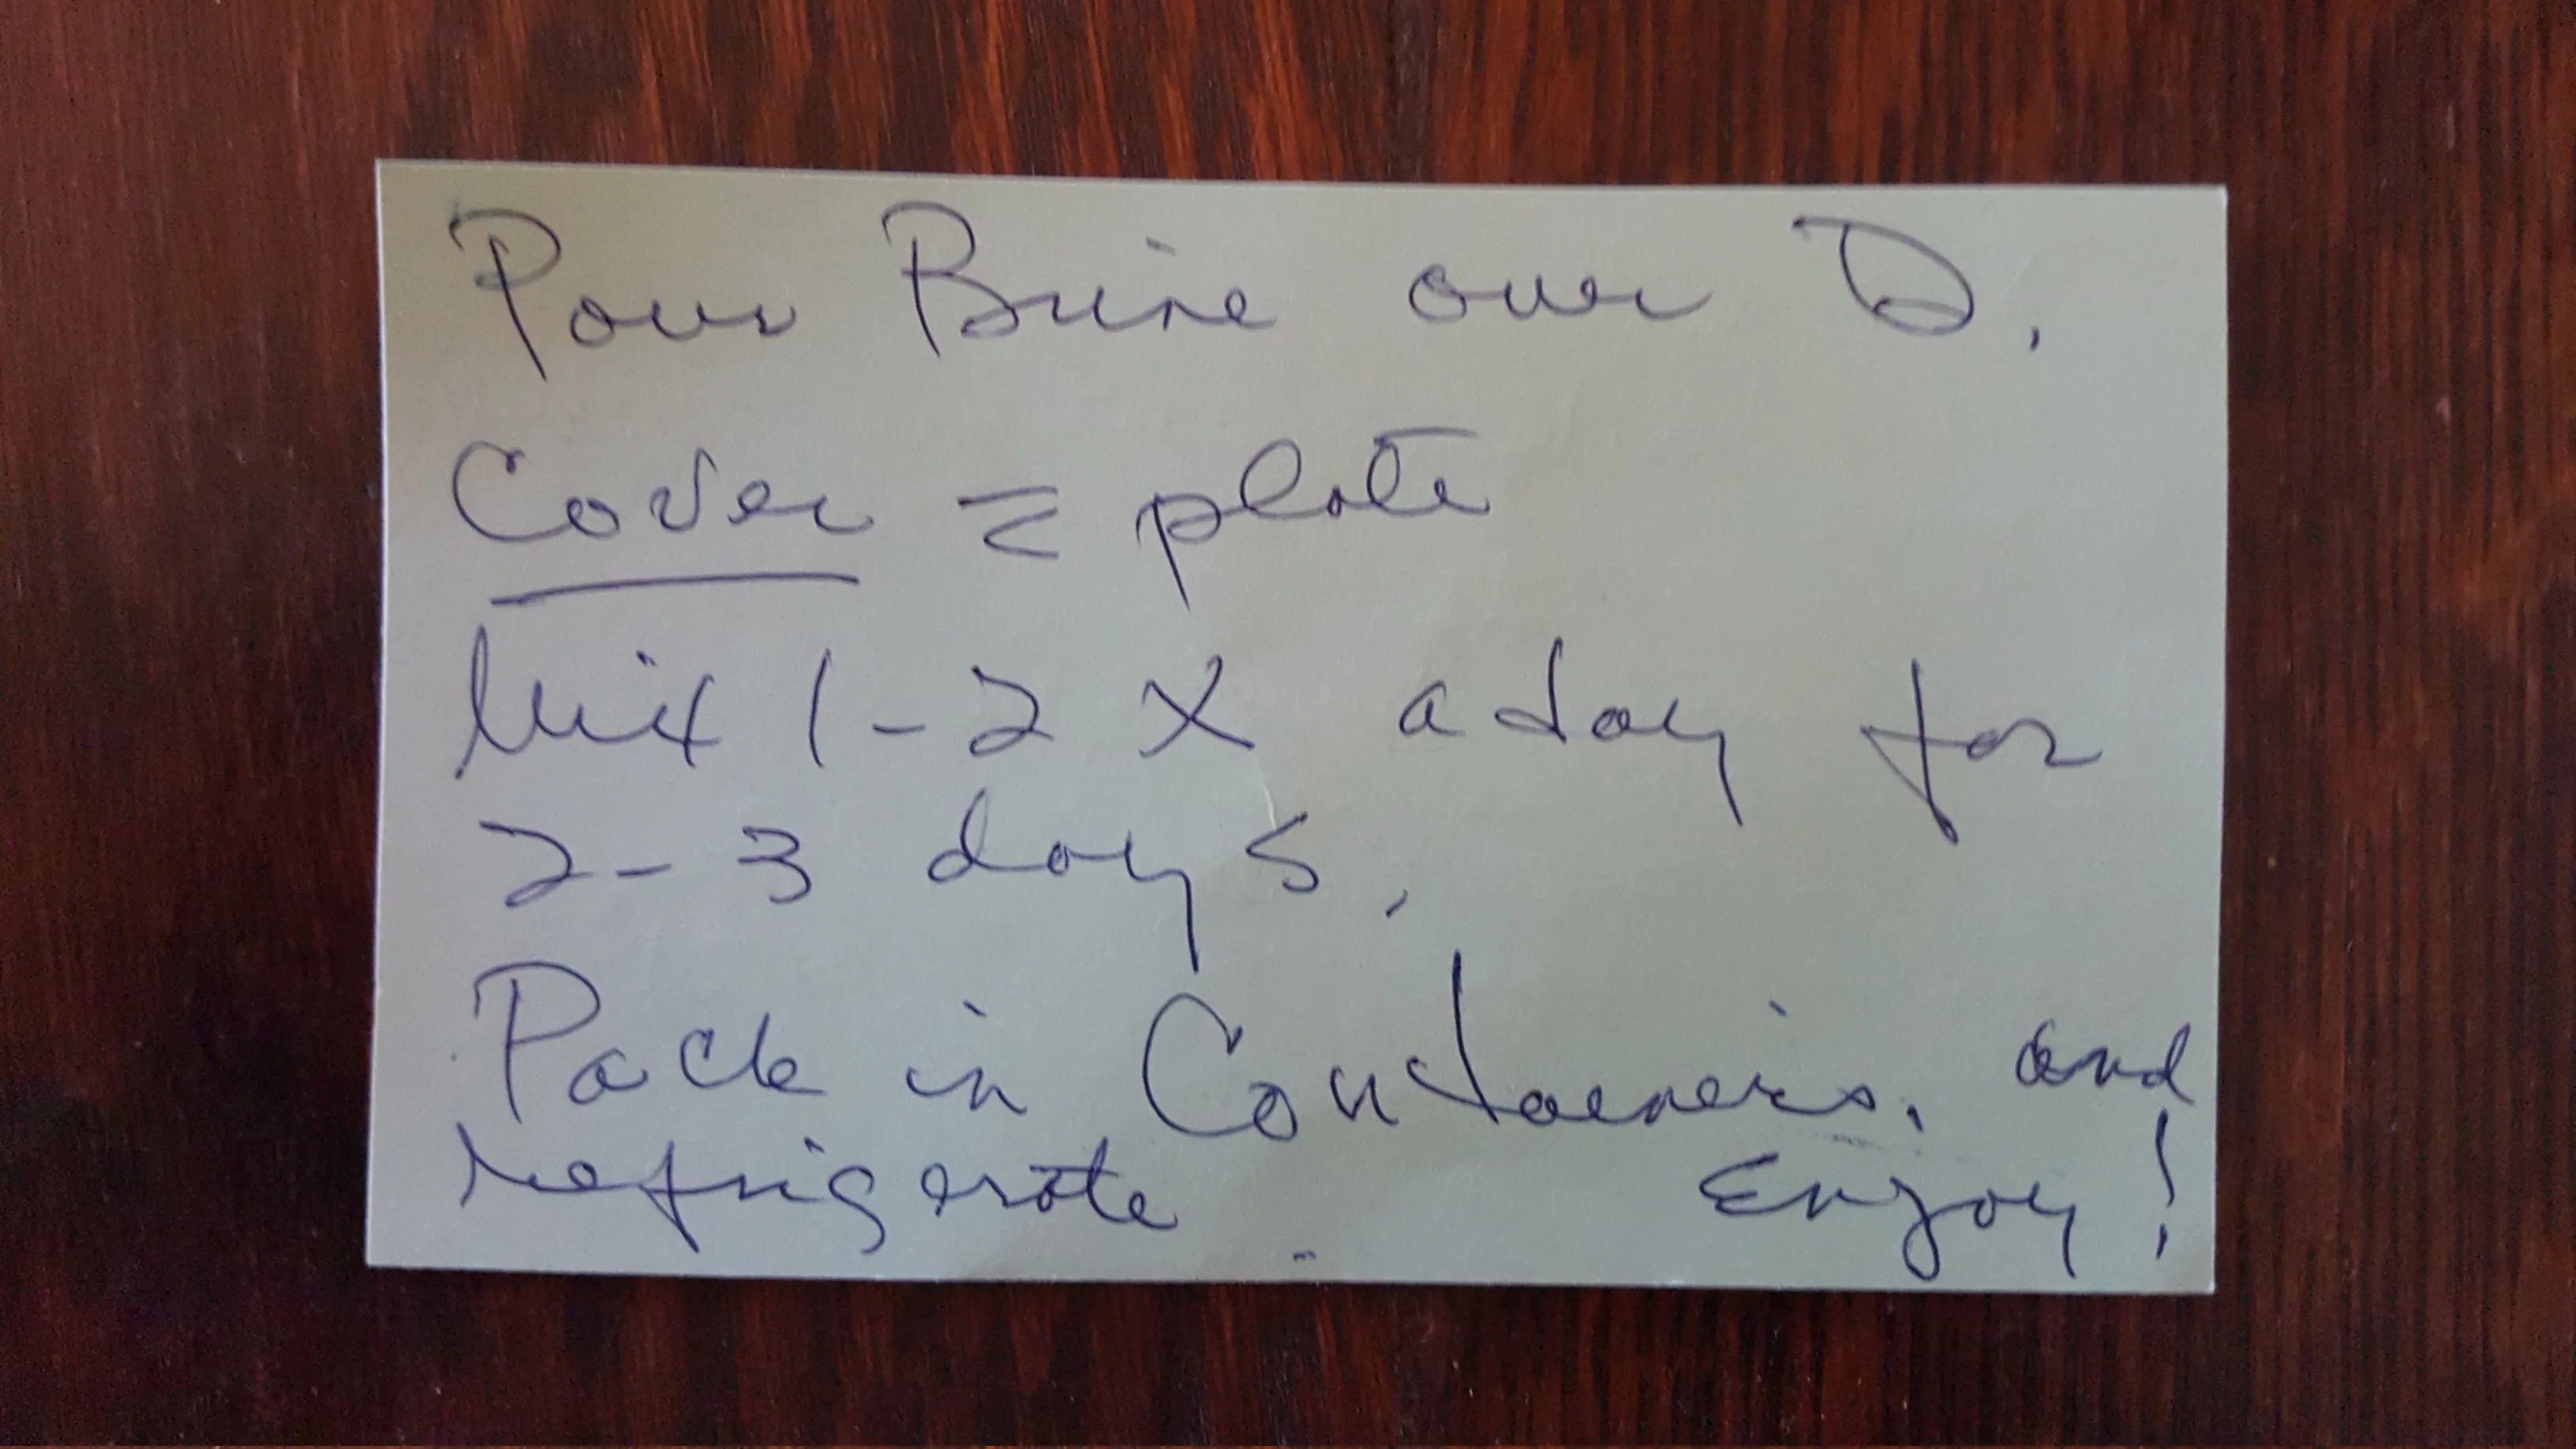 Pour Brine over
Cover = plate
Mix 1-2 X a day for
2-3 days.
Pack in Containers. and
refrigerate. Enjoy!